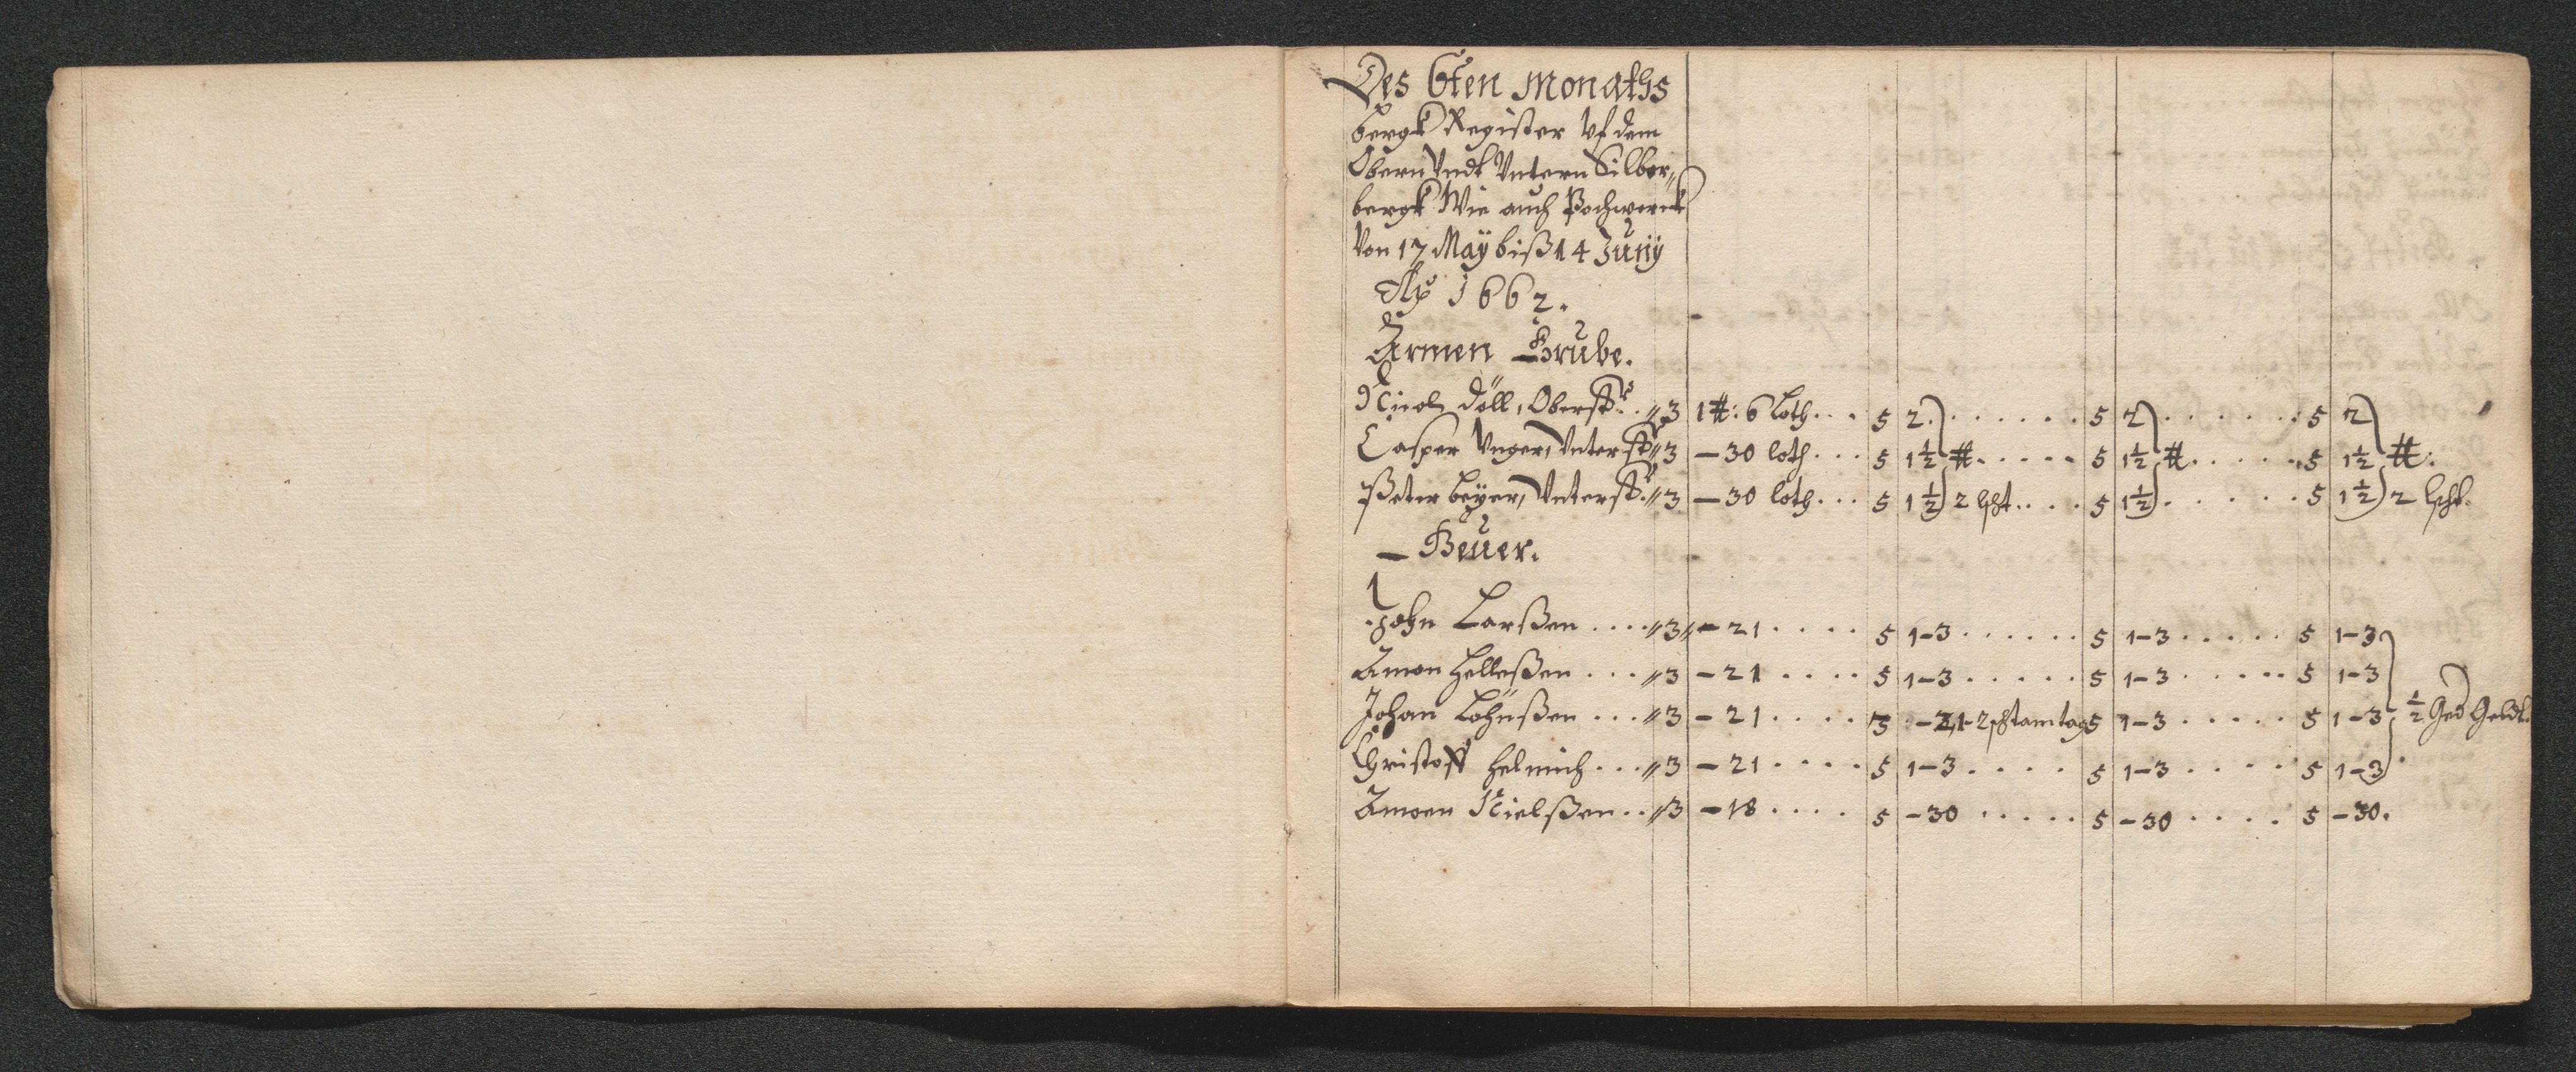 Des 6ten Monaths
bergk Register Vf dem
Obern Vndt Vntern Silber„
bergk Wie auch Pochwerck
Von 17 Maÿ biß 14 Junÿ
Ao 1662.
Armen Grube.
Nicol Döll, Oberst. .. „ 3 1 #: 6 Loth ... 5 2. ....... 5 2 ....... 5 2
Casper Unger, Vnterst „ 3 – 30 loth ... 5 1½ # ..... 5 1½ # ..... 5 1½ #.
Peter beÿer, Vnterst. „ 3 – 30 loth ... 5 1½ 2 lßt .... 5 1½ ...... 5 1½ 2 lßt.
Heüer.
John Larßen .... „ 3 „ – 21 .... 5 1–3 ...... 5 1–3 ..... 5 1–3
Amon Helleßen ... „ 3 – 21 .... 5 1–3 ..... 5 1–3 ..... 5 1–3
Johan ... „ 3 – 21 .... 3 – 21 5 1–3 ..... 5 1–3 ½ Ged Geldt.
Christoff Helmich ... „ 3 – 21 .... 5 1–3 .... 5 1–3 .... 5 1–3
Amoen Nielßen .. „ 3 – 18 .... 5 – 30 ..... 5 – 30 .... 5 – 30.